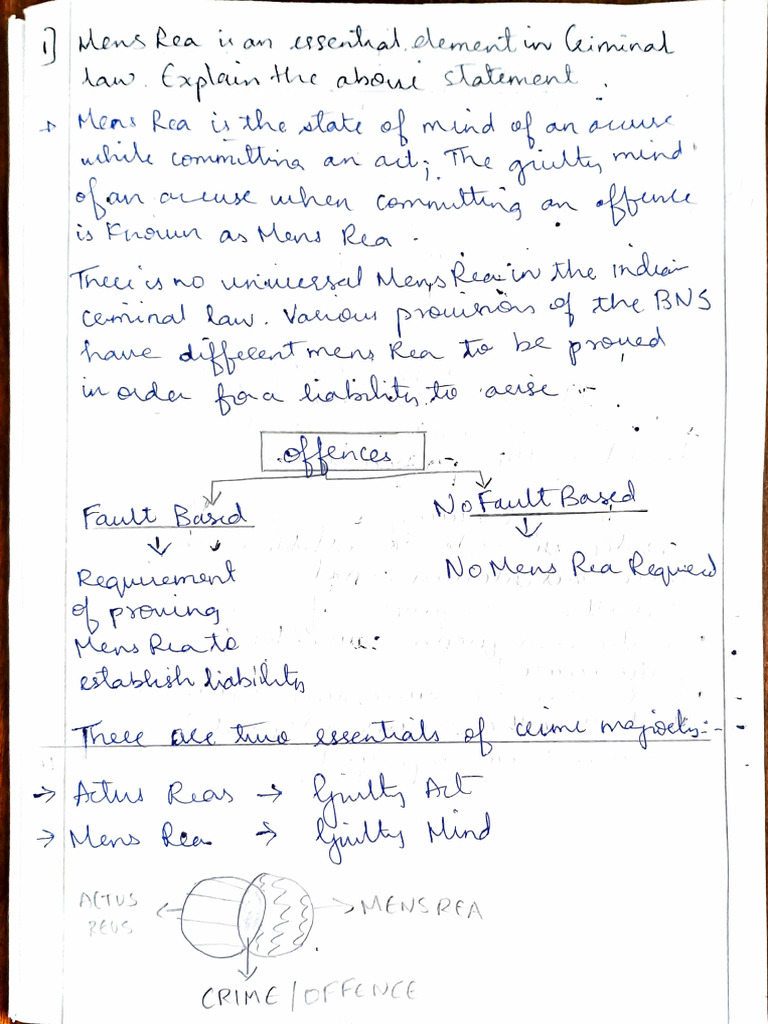 1) Mens Rea is an essential element in Criminal
law. Explain the above statement.
→ Mens Rea is the state of mind of an accuse
while committing an act; The guilty mind
of an accuse when committing an offence
is Known as Mens Rea.
There is no universal Mens Rea in the indian
criminal law. Various provisions of the BNS
have different mens Rea to be proved
in order for a liability to arise :-
offences
Fault Based
No Fault Based
Requirement
of proving
Mens Rea to
establish liability
No Mens Rea Required
There are two essentials of crime majorly:-
→ Actus Reas → Guilty Act
→ Mens Rea → Guilty Mind
ACTUS
REUS
MENS REA
CRIME/OFFENCE